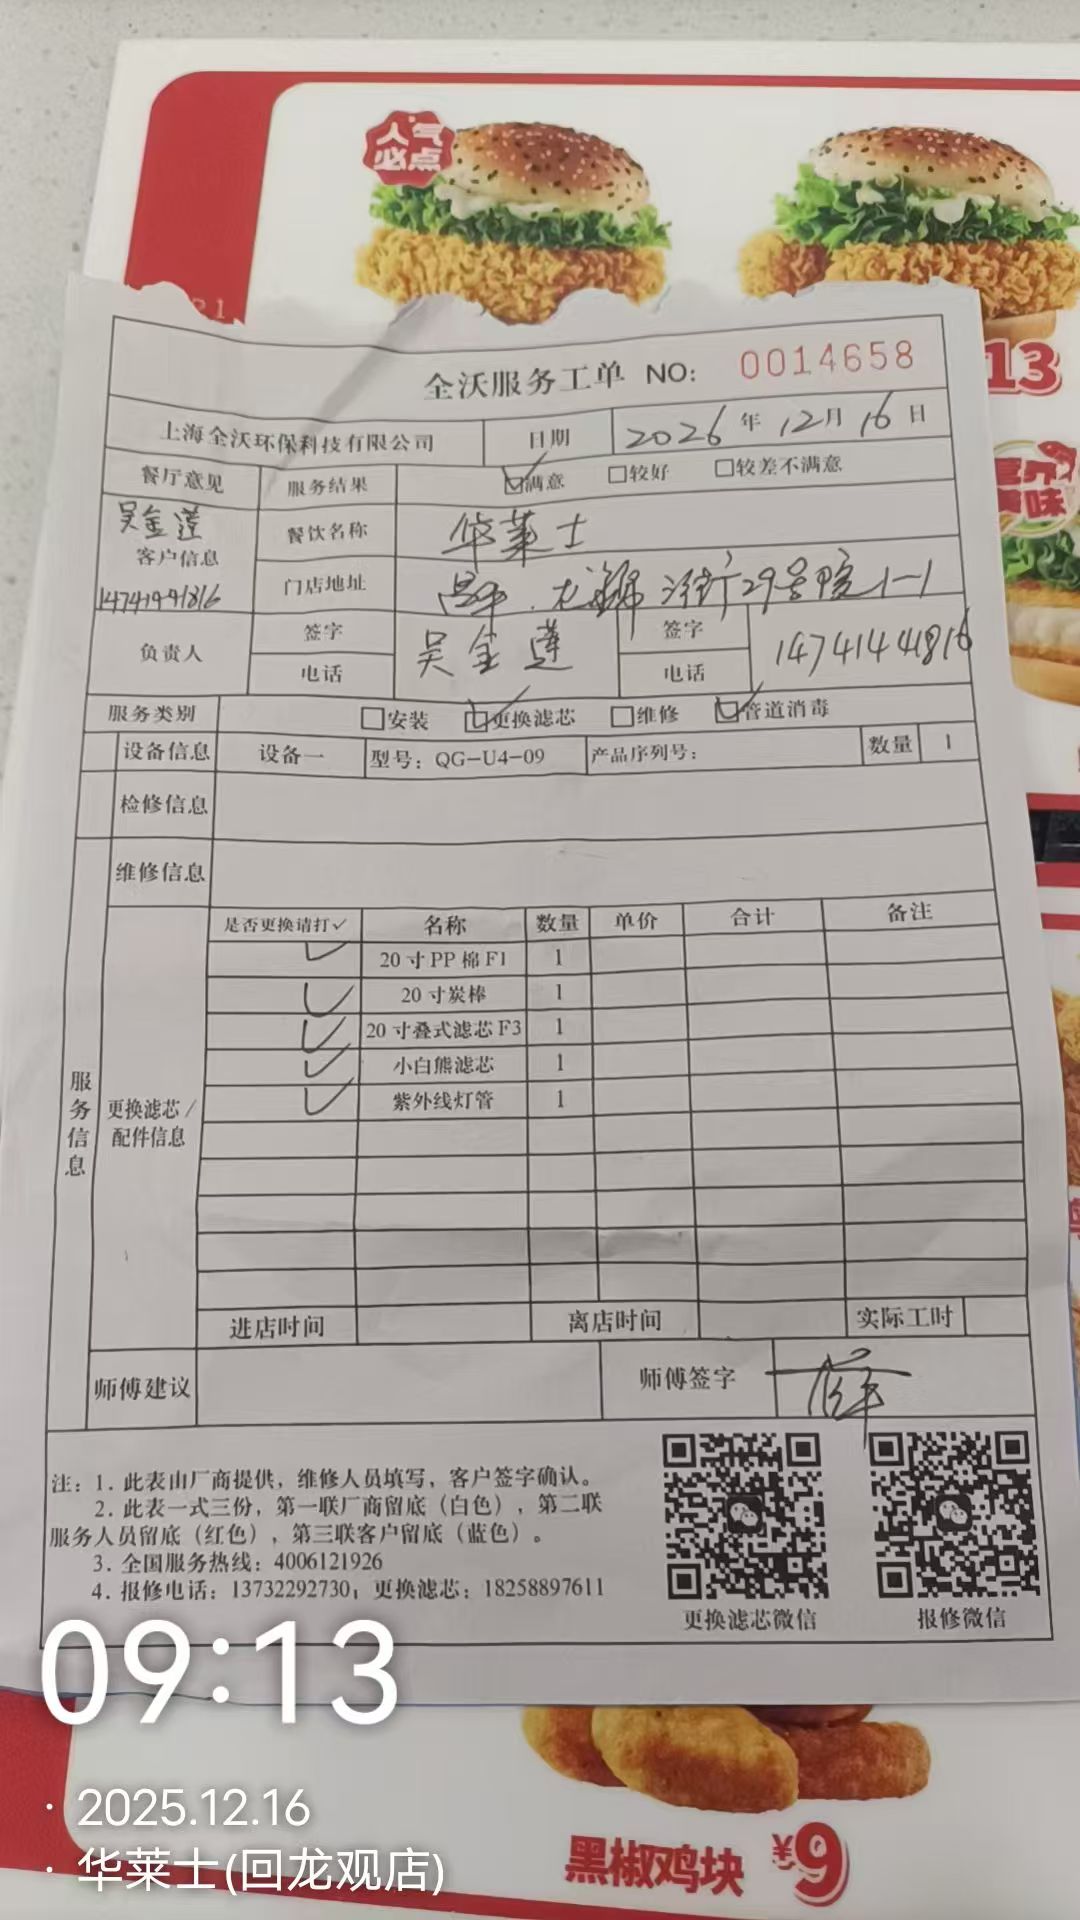 人气
必点
13
全沃服务工单 NO: 0014658
上海全沃环保科技有限公司 日期 2026年12月16日
餐厅意见 服务结果 满意 较好 较差不满意
吴金莲
客户信息 餐饮名称 华莱士
门店地址 昌平. 29号院1-1
负责人 签字 吴金莲 签字
电话 电话 14741441816
服务类别 安装 更换滤芯 维修 管道消毒
设备信息 设备一 型号：QG-U4-09 产品序列号： 数量 1
检修信息
维修信息
服务信息
更换滤芯/
配件信息
是否更换请打✓ 名称 数量 单价 合计 备注
✓ 20寸PP棉F1 1
✓ 20寸炭棒 1
✓ 20寸叠式滤芯F3 1
✓ 小白熊滤芯 1
✓ 紫外线灯管 1
进店时间 离店时间 实际工时
师傅建议 师傅签字
注：1. 此表由厂商提供，维修人员填写，客户签字确认。
2. 此表一式三份，第一联厂商留底（白色），第二联
服务人员留底（红色），第三联客户留底（蓝色）。
3. 全国服务热线：4006121926
4. 报修电话：13732292730；更换滤芯：18258897611
更换滤芯微信 报修微信
09:13
2025.12.16
华莱士(回龙观店)
黑椒鸡块 ¥9